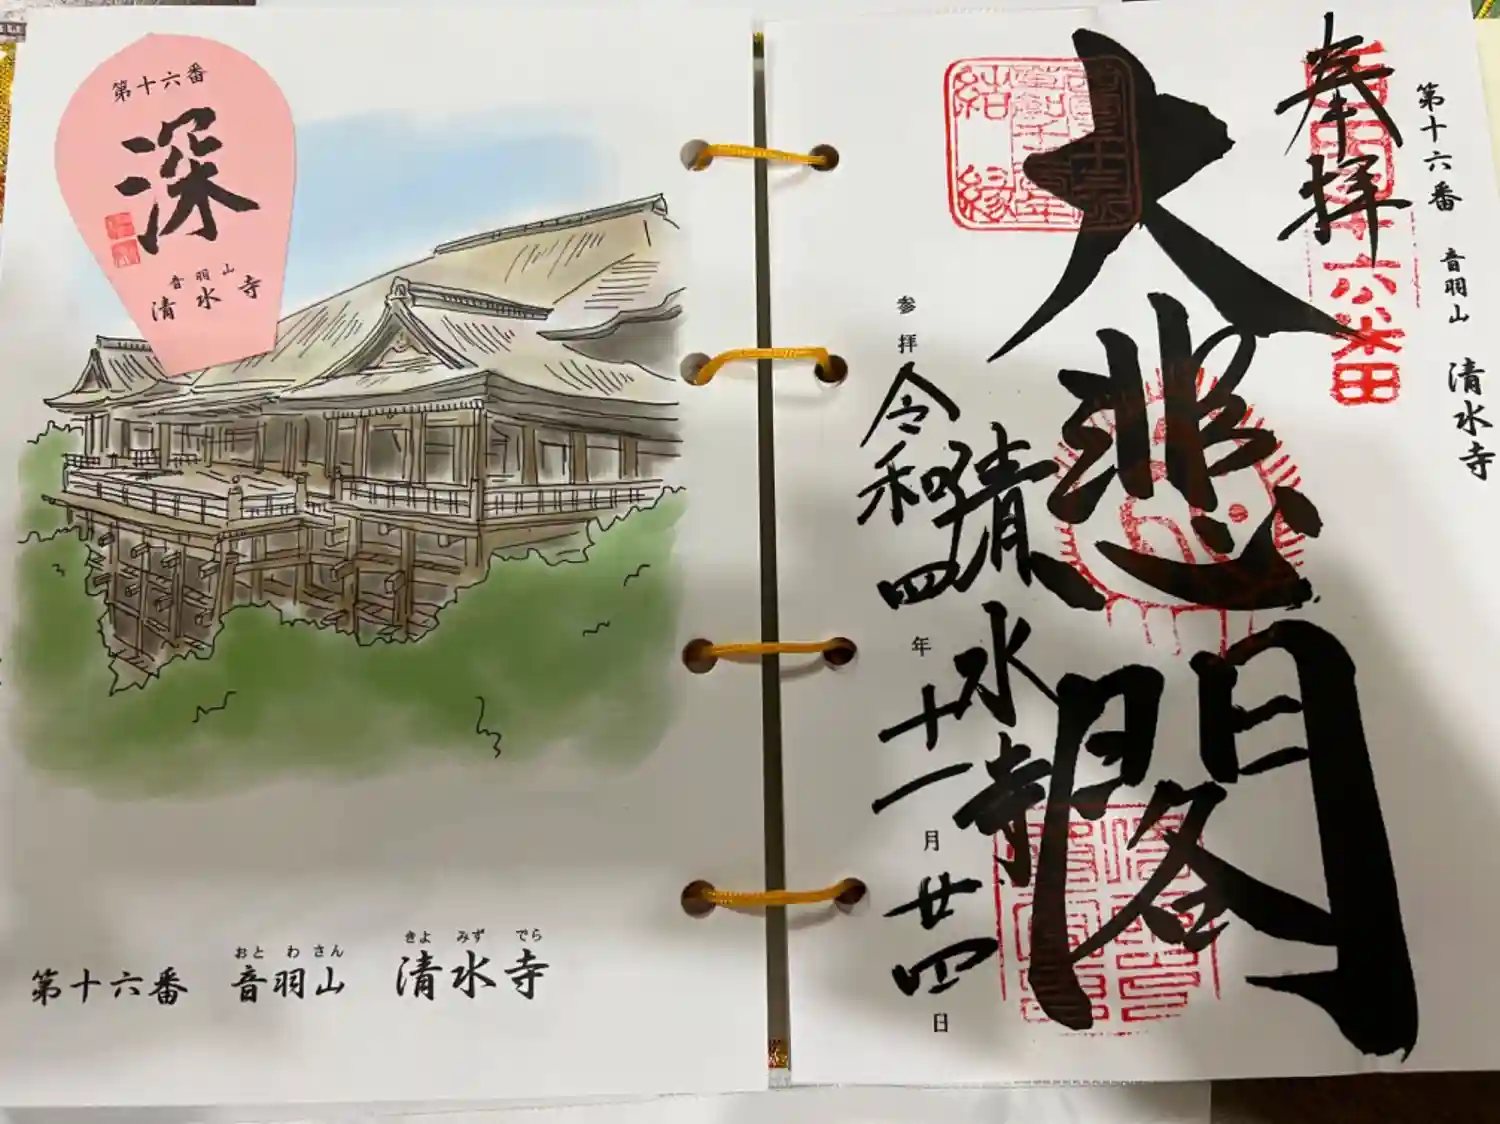 第十六番
深
音羽山
清水寺
第十六番 音羽山 清水寺
おと わ さん きよ みず でら
第十六番 音羽山 清水寺
奉拝
大悲閣
清水寺
参拝 令和四年十一月廿四日
結縁